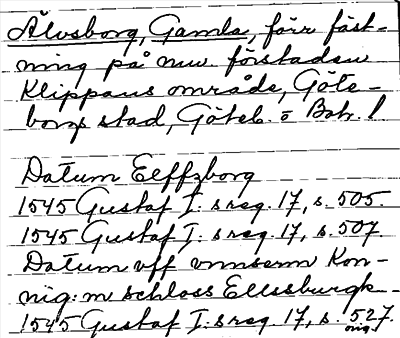 Älvsborg, Gamla, förr fäst-
ning på nuv. förstaden
Klippans område, Göte-
borgs stad, Göteb. o Boh. l
Datum Elffzborg
1545 Gustaf I: s reg. 17, s. 505.
1545 Gustaf I: s reg. 17, s. 507
Datum vff vnnserm Kon-
nig: m schloss Ellssburgk
1545 Gustaf I: s reg. 17, s. 527.
orig.